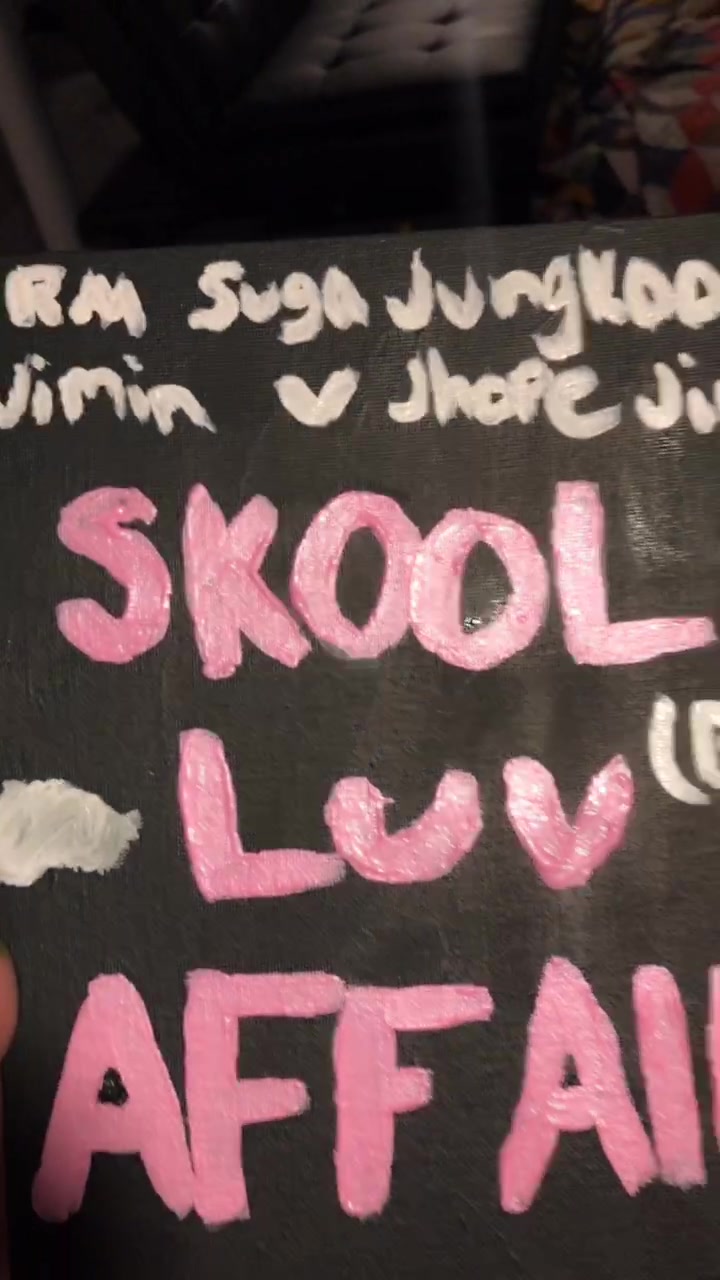 RM Suga JungKoo
Jimin Jhope Ji
SKOOL
LUV
AFFAI